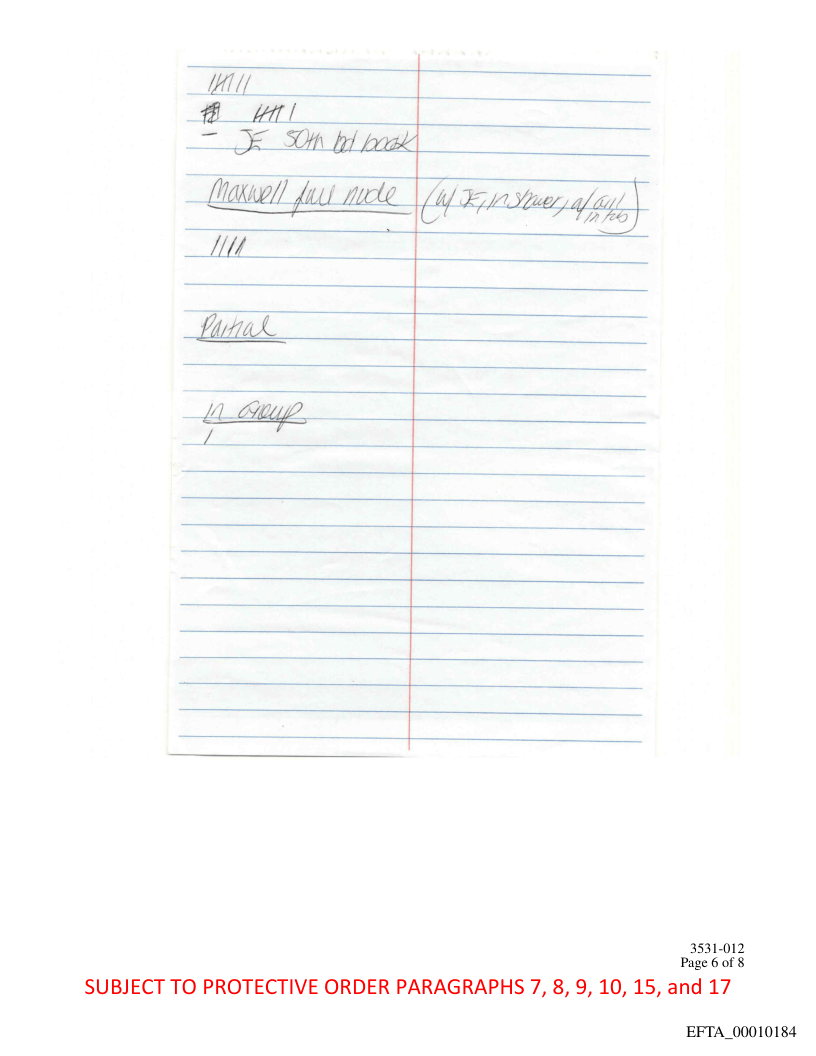 - JE 50th bd book
Maxwell full nude (w/ JE, in shower, w/ girl
in
Partial
In Group
3531-012
Page 6 of 8
SUBJECT TO PROTECTIVE ORDER PARAGRAPHS 7, 8, 9, 10, 15, and 17
EFTA_00010184